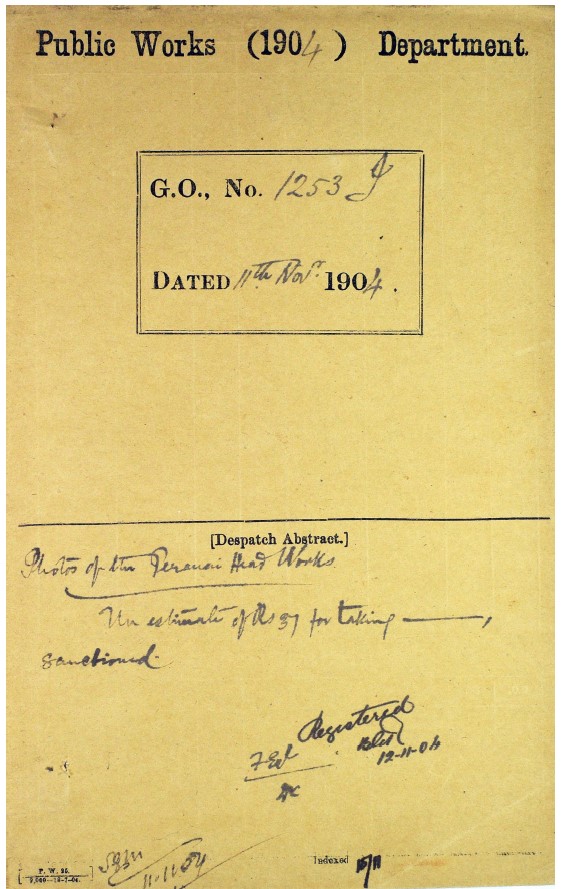 Public Works (1904) Department.
G.O., No. 1253 I
DATED 11th Novr. 1904.
[Despatch Abstract.]
Photos of the Peranai Head Works
An estimate of Rs 37 for taking ———,
sanctioned.
Registered
12-11-04
P. W. 25.
Indexed 15/11